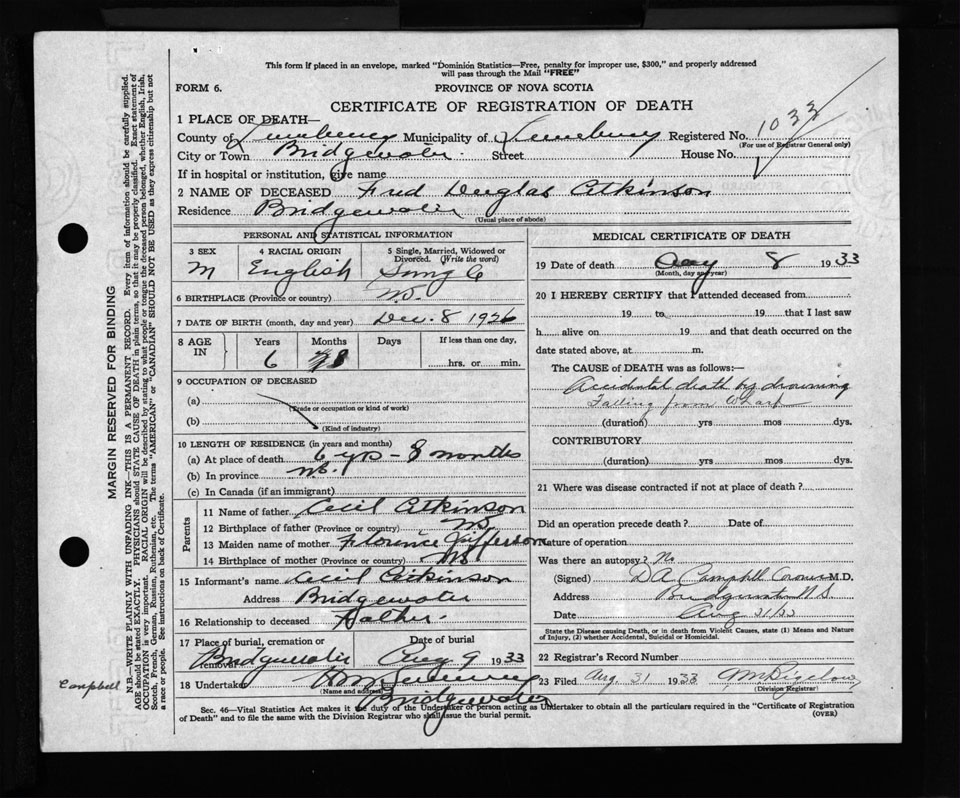 This form if placed in an envelope, marked "Dominion Statistics—Free, penalty for improper use, $300," and properly addressed
will pass through the Mail "FREE"
FORM 6.
PROVINCE OF NOVA SCOTIA
CERTIFICATE OF REGISTRATION OF DEATH
1 PLACE OF DEATH—
County of Lunenburg Municipality of Lunenburg Registered No. 1033
(For use of Registrar General only)
City or Town Bridgewater Street House No.
If in hospital or institution, give name
2 NAME OF DECEASED Fred Douglas Atkinson
Residence Bridgewater
(Usual place of abode)
PERSONAL AND STATISTICAL INFORMATION
3 SEX 4 RACIAL ORIGIN 5 Single, Married, Widowed or Divorced. (Write the word)
M English Single
6 BIRTHPLACE (Province or country) N.S.
7 DATE OF BIRTH (month, day and year) Dec. 8 1926
8 AGE IN Years Months Days If less than one day,
6 8 hrs. or min.
9 OCCUPATION OF DECEASED
(a)
(Trade or occupation or kind of work)
(b)
(Kind of industry)
10 LENGTH OF RESIDENCE (in years and months)
(a) At place of death 6 yrs - 8 months
(b) In province N.S.
(c) In Canada (if an immigrant)
Parents
11 Name of father Cecil Atkinson
12 Birthplace of father (Province or country) N.S.
13 Maiden name of mother Florence Jefferson
14 Birthplace of mother (Province or country) N.S.
15 Informant's name Cecil Atkinson
Address Bridgewater
16 Relationship to deceased Father
17 Place of burial, cremation or removal Date of burial
Bridgewater Aug 9 1933
18 Undertaker
(Name and address)
Bridgewater
MEDICAL CERTIFICATE OF DEATH
19 Date of death Aug 8 1933
(Month, day and year)
20 I HEREBY CERTIFY that I attended deceased from
19 to 19 that I last saw
h alive on 19 and that death occurred on the
date stated above, at m.
The CAUSE of DEATH was as follows:—
Accidental death by drowning
Falling from Wharf
(duration) yrs mos dys.
CONTRIBUTORY
(duration) yrs mos dys.
21 Where was disease contracted if not at place of death?
Did an operation precede death? Date of
Nature of operation
Was there an autopsy? No
(Signed) D A Campbell Coroner M.D.
Address Bridgewater N.S.
Date Aug 31/33
State the Disease causing Death, or in death from Violent Causes, state (1) Means and
Nature of Injury, (2) whether Accidental, Suicidal or Homicidal.
22 Registrar's Record Number
23 Filed Aug. 31 1933
(Division Registrar)
Sec. 46—Vital Statistics Act makes it the duty of the Undertaker or person acting as Undertaker to obtain all the particulars required in the "Certificate of Registration
of Death" and to file the same with the Division Registrar who shall issue the burial permit.
(OVER)
MARGIN RESERVED FOR BINDING
N.B.—WRITE PLAINLY WITH UNFADING INK—THIS IS A PERMANENT RECORD. Every item of information should be carefully supplied.
AGE should be stated EXACTLY. PHYSICIANS should STATE CAUSE OF DEATH in plain terms, so that it may be properly classified. Exact statement of
OCCUPATION is very important. RACIAL ORIGIN will be described by stating to what people or tongue the deceased person belonged, whether English, Irish,
Scotch, French, German, Russian, Ruthenian, etc. The terms "AMERICAN" or "CANADIAN" SHOULD NOT BE USED as they express citizenship but not
a race or people. See instructions on back of Certificate.
Campbell